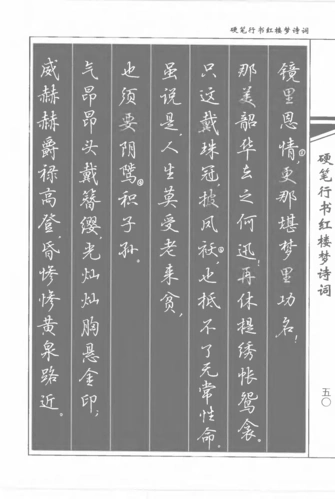 硬笔行书红楼梦诗词
镜里恩情，①更那堪梦里功名！
那美韶华去之何迅！再休提绣帐鸳衾。
只这戴珠冠，披凤袄，②也抵不了无常性命。
虽说是人生莫受老来贫，
也须要阴骘③积子孙。
气昂昂头戴簪缨，光灿灿胸悬金印；
威赫赫爵禄高登，昏惨惨黄泉路近。
硬笔行书红楼梦诗词
五〇